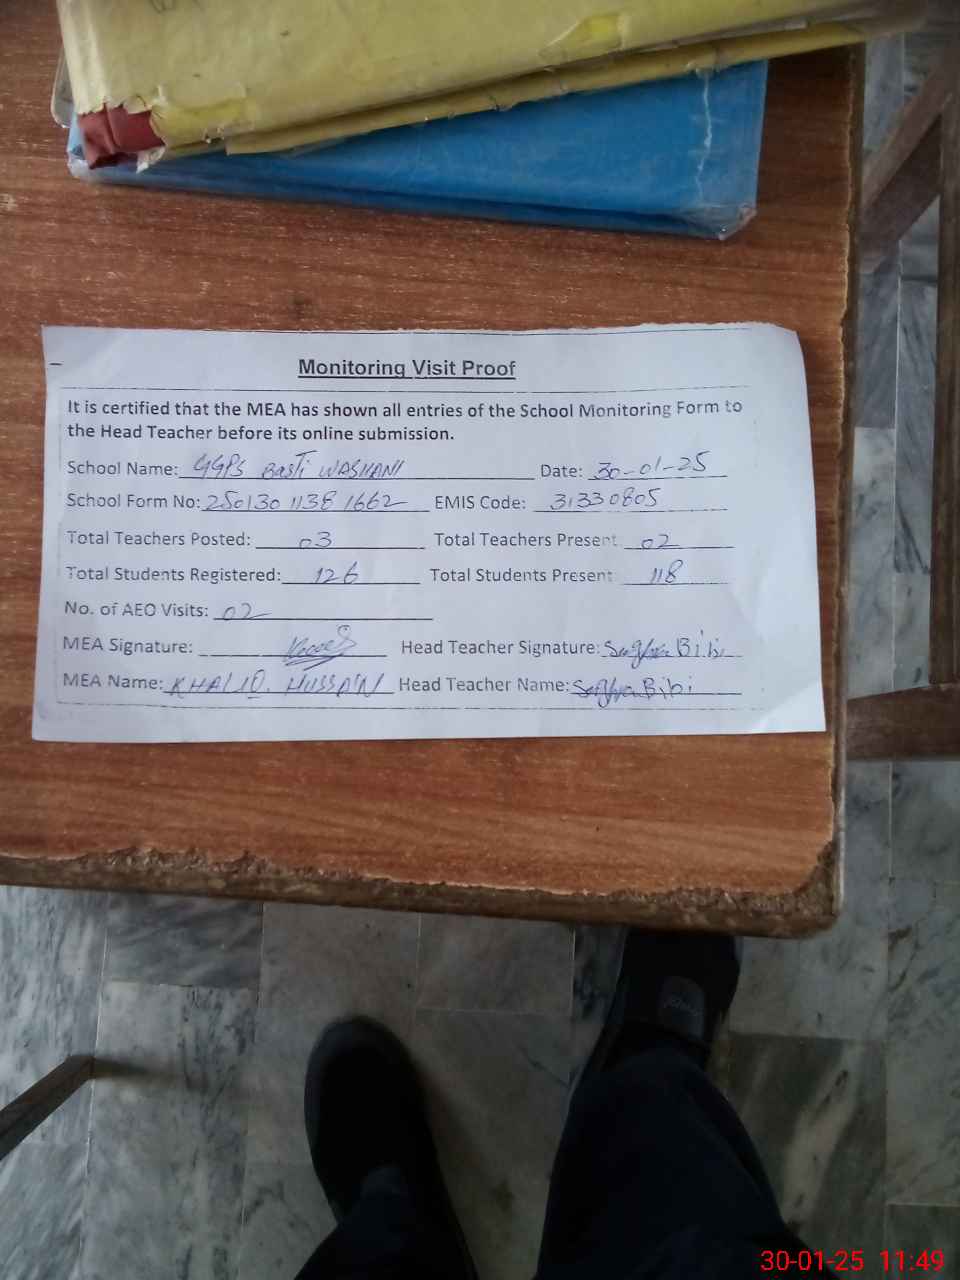 Monitoring Visit Proof
It is certified that the MEA has shown all entries of the School Monitoring Form to
the Head Teacher before its online submission.
School Name: GGPS Basti WASHANI Date: 30-01-25
School Form No: 250130 1138 1662 EMIS Code: 31330805
Total Teachers Posted: 03 Total Teachers Present: 02
Total Students Registered: 126 Total Students Present: 118
No. of AEO Visits: 02
MEA Signature: Head Teacher Signature: Saghra Bibi
MEA Name: KHALID. HUSSAIN Head Teacher Name: Saghra Bibi
30-01-25 11:49